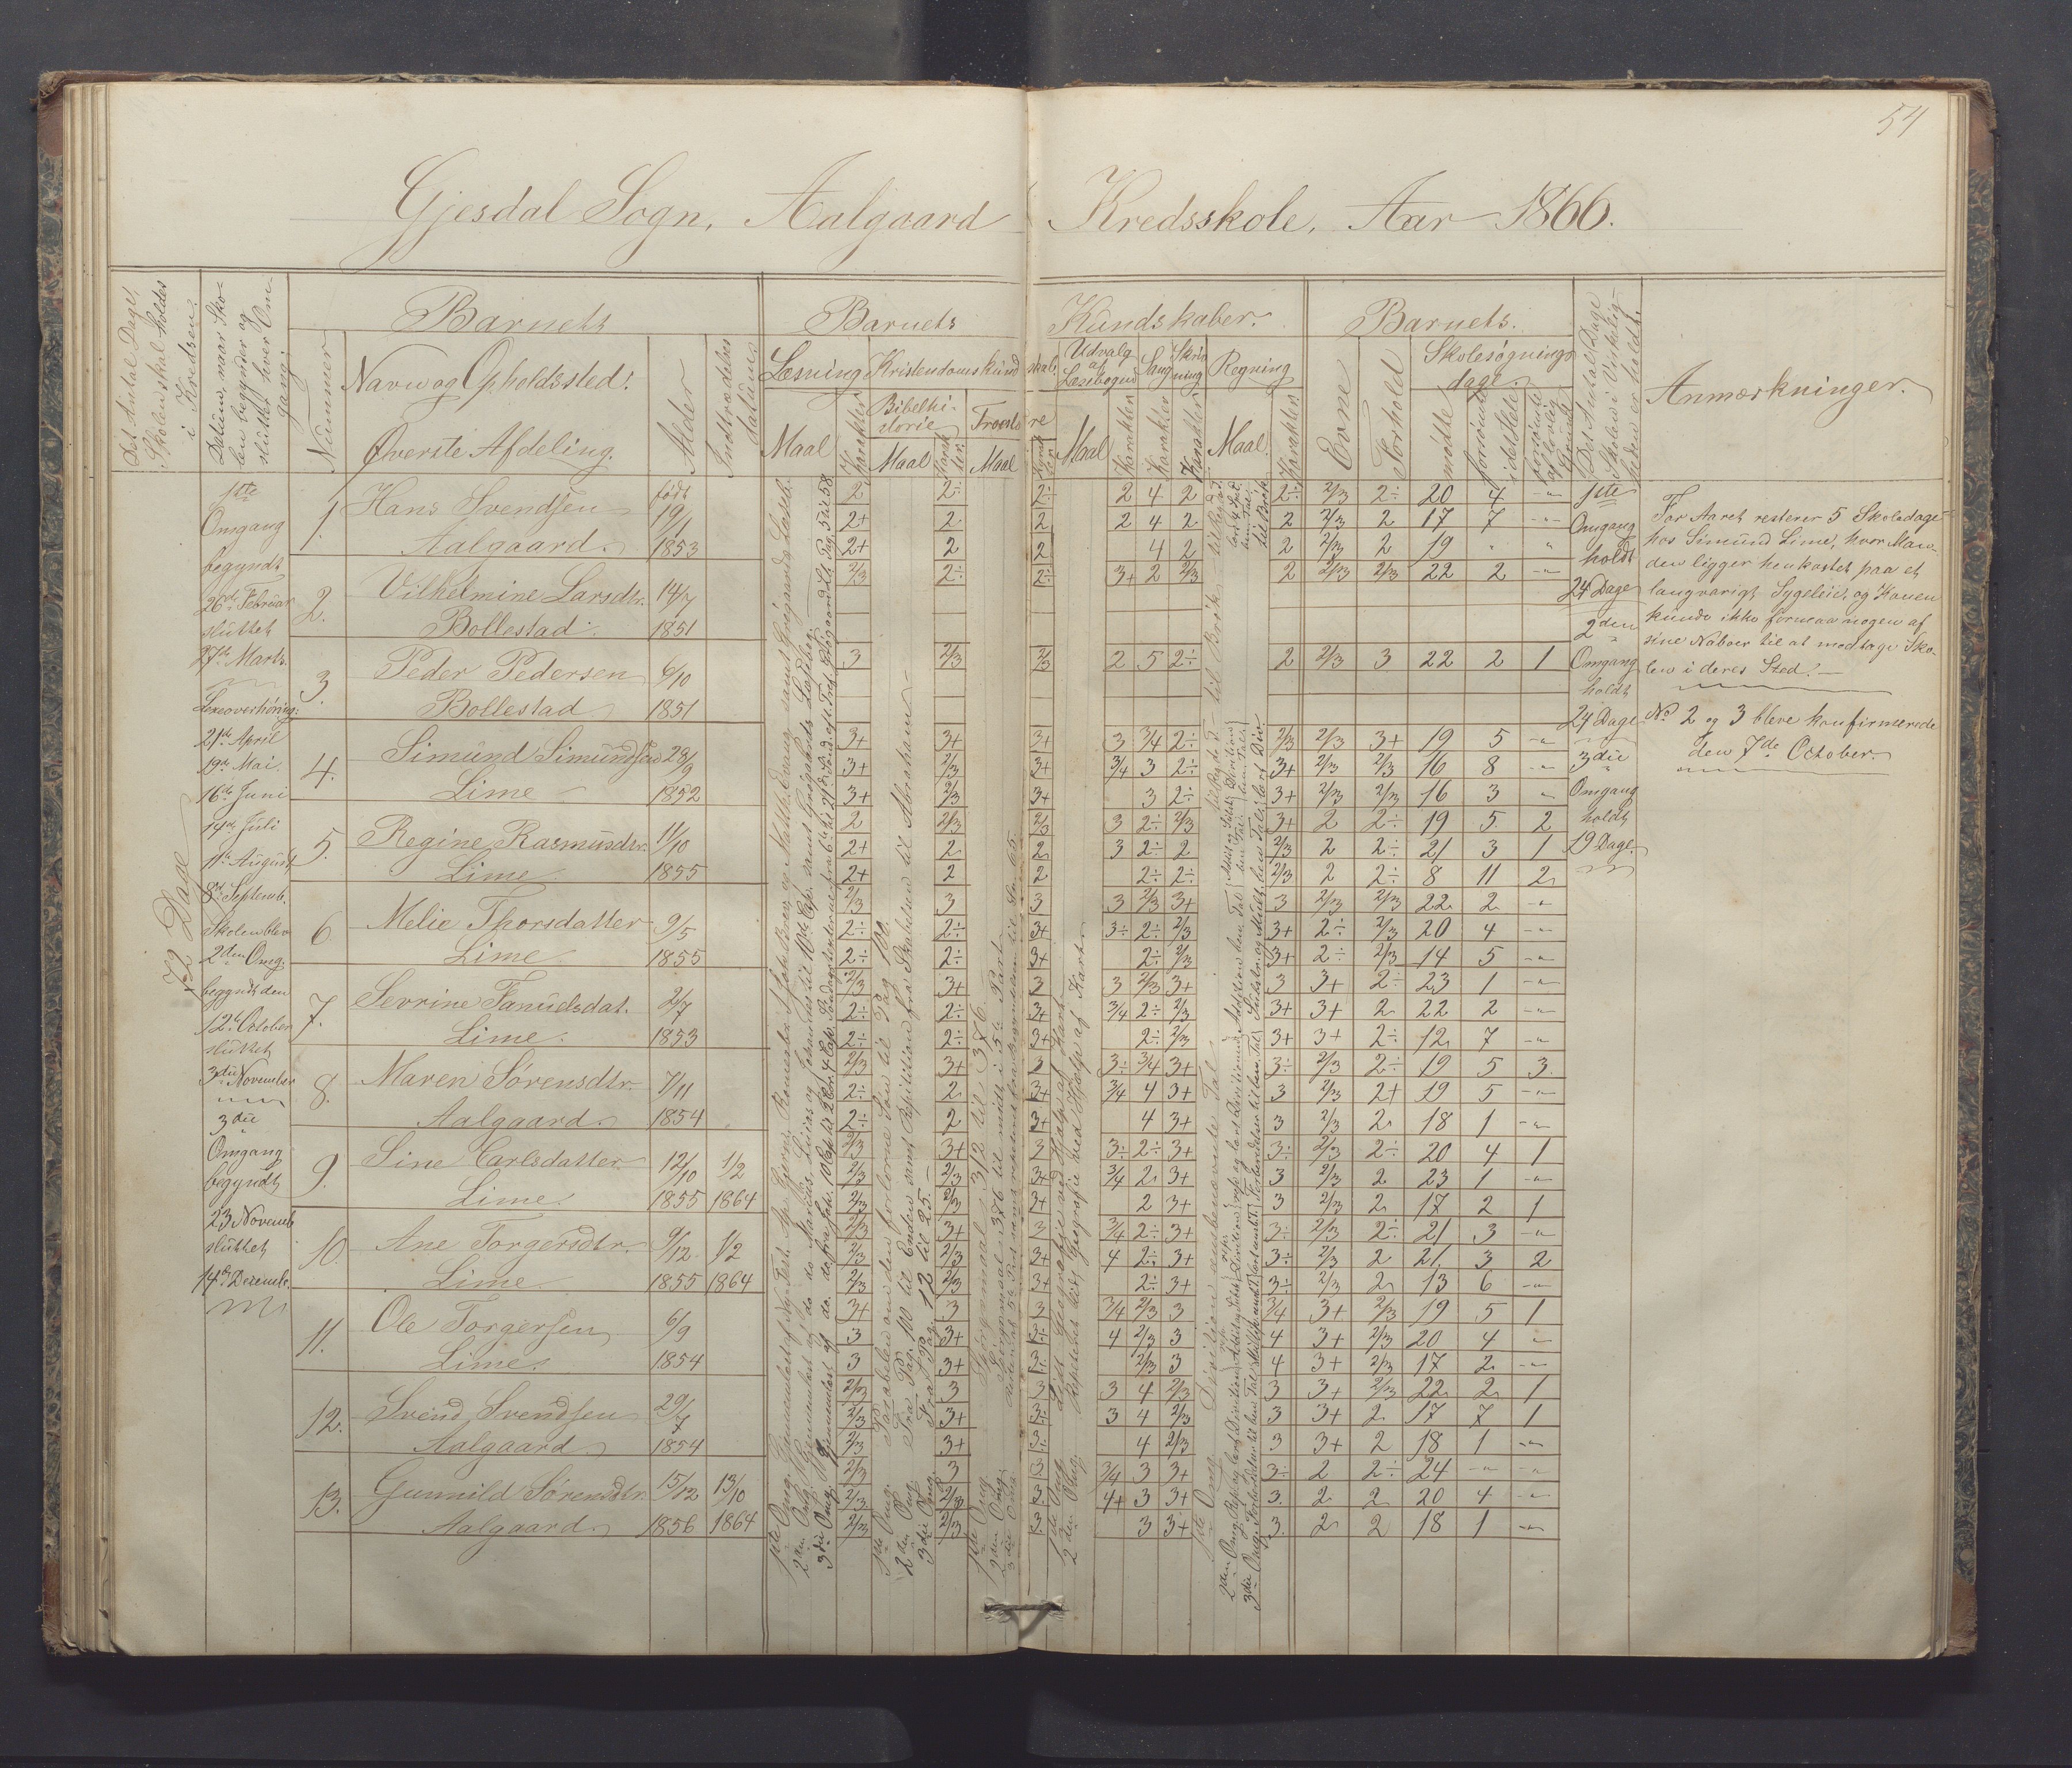 54
Gjesdal Sogn, Aalgaard Kredsskole, Aar 1866.
Det Antal Dage,
Skolen skal holdes
i Kredsen.
Datum, naar Sko-
len begynder og
slutter hver Om-
gang.
Barnets
Nummer
Navn og Opholdssted.
Øverste Afdeling.
Alder
Indtrædelses
Datum
Barnets Kundskaber.
Læsning
Maal
Karakter
Kristendomskundskab.
Bibelhi-
storie
Maal
Karak-
ter.
Troeslære
Maal
Udvalg
af
Læsebogen
Maal
Karakter
Sang
Karakter
Skriv-
ning
Karakter
Regning
Maal.
Karakter
Barnets.
Evne
Forhold
Skolesøgnings
dage.
mødte
forsømte
i det Hele
forsømte
af lovlig
Grund
Det Antal Dage
Skolen i Virkelig-
heden er holdt.
Anmærkninger.
72 Dage
1ste
Omgang
begyndt
26de Februar
sluttet
27de Marts.
Lexeoverhøring:
21de April
19de Mai.
16de Juni
14de Juli
11te August
8de Septemb.
Skolen blev
2den Omg.
begyndt den
12te October
sluttet
3die November
3die
Omgang
begyndt
23 Novemb
sluttet
14de Decemb.
1. Hans Svendsen født 19/1
Aalgaard. 1853
2. Vilhelmine Larsdtr. 14/7
Bollestad. 1851
3. Peder Pedersen 6/10
Bollestad 1851
4. Simund Simundsen 28/9
Lime 1852
5. Regine Rasmusdtr. 11/10
Lime 1855
6 Melie Thorsdatter 9/5
Lime. 1855
7. Sevrine Fanuelsdat. 2/7
Lime. 1853
8. Maren Sørensdtr. 7/11
Aalgaard. 1854
9. Sine Carlsdatter 12/10 1/2
Lime. 1855 1864
10. Ane Torgersdtr. 9/12 1/2
Lime. 1855 1864
11. Ole Torgersen 6/9
Lime. 1854
12. Svend Svendsen 29/7
Aalgaard 1854
13. Gunnild Sørensdtr. 15/12 13/10
Aalgaard. 1856 1864
2 2÷ 2÷ 2 4 2 2÷ 2/3 2÷ 20 4 -"-
2+ 2 2 2 4 2 2 2/3 2 17 7 -"-
2+ 2 2 4 2 2 2/3 2 19 " "
2/3 2÷ 2÷ 3+ 2 2/3 2 2/3 2/3 22 2 -"-
3 2/3 2/3 2 5 2÷ 2 2/3 3 22 2 1
3+ 3+ 3+ 3 3/4 2÷ 2/3 2/3 3+ 19 5 -"-
3+ 2/3 3+ 3/4 3 2÷ 3+ 2/3 2/3 16 8 -"-
3+ 2/3 3+ 3 2÷ 3+ 2/3 2/3 16 3 "
2 2/3 2/3 3 2÷ 2/3 3+ 2 2÷ 19 5 2
2+ 2 2 3 2÷ 2 2/3 2 2÷ 21 3 1
2+ 2 2 2÷ 2÷ 2/3 2 2÷ 8 11 2
2/3 3 3 3 2/3 3+ 3 2/3 2/3 22 2 -"-
2÷ 2÷ 3+ 3÷ 2÷ 2/3 3+ 2÷ 2/3 20 4 -"-
2÷ 2÷ 3+ 2÷ 2/3 3+ 2÷ 2/3 14 5 -"-
2/3 3+ 3 3 2/3 3+ 3 3+ 2÷ 23 1 -"-
2÷ 2÷ 3+ 3/4 2÷ 2/3 3+ 3+ 2 22 2 -"-
2÷ 2÷ 3+ 2÷ 2/3 3+ 3+ 2÷ 12 7 -"-
2/3 3+ 3 3÷ 3/4 3+ 3÷ 2/3 2÷ 19 5 3
2÷ 2 3+ 3/4 4 3+ 3 2/3 2+ 19 5 -"-
2÷ 2 3+ 4 3+ 3 2/3 2 18 1 -"-
2/3 3+ 3 3÷ 2÷ 3+ 3÷ 2/3 2÷ 20 4 1
2/3 2/3 3+ 3/4 2 3+ 3 2/3 2 23 1 -"-
2/3 2/3 3+ 2 3+ 3 2/3 2 17 2 1
2/3 3+ 3 3/4 2÷ 3+ 3÷ 2/3 2÷ 21 3 -"-
2/3 2/3 3+ 4 2÷ 3+ 3÷ 2/3 2 21 3 2
2/3 2/3 3+ 2÷ 3+ 3÷ 2/3 2 13 6 -"-
3+ 3 3 3/4 2/3 3 3/4 3+ 2/3 19 5 1
3 3+ 3÷ 4 2/3 3 4 3+ 2/3 20 4 "
3 3+ 3÷ 2/3 3 4 3+ 2/3 17 2 -"-
2/3 3 3 3 4 2/3 3 3+ 2/3 22 2 1
2/3 3+ 3÷ 3 4 2/3 3 3+ 2 17 7 1
2/3 3+ 3÷ 4 2/3 3 3+ 2 18 1 -"-
2/3 3 3 3/4 3 3+ 3÷ 2 2÷ 24 -"- -"-
2/3 2/3 3. 4+ 3 3+ 3. 2 2 20 4 -"-
2/3 2/3 3. 3 3+ 3. 2 2 18 1 -"-
1ste Omg. Parabelen om den forlorne Søn til Pag 100.
2den Omg Fra Pag. 100 til Enden samt Repitition fra Skabelsen til Abraham
3die Omg. Fra Pag. 12 til 25.
1ste Omg. Spørgsmaal 312 til 376.
1ste Omg. Lidt Geografie ved Hjælp af Kart
2den Omg. Repeteret lidt Geografie med Hjælp af Karter
1ste Omg. Division i ubenævnte Tal
1ste
Omgang
holdt
24 Dage
2den
Omgang
holdt
24 Dage
3die
Omgang
holdt
19 Dage.
For Aaret resterer 5 Skoledage
hos Simund Lime, hvor Man-
den ligger henkastet paa et
langvarigt Sygeleie, og Konen
kunde ikke formaa nogen af
sine Naboer til at modtage Sko-
len i deres Sted.
No. 2 og 3 bleve konfirmerede
den 7de October.